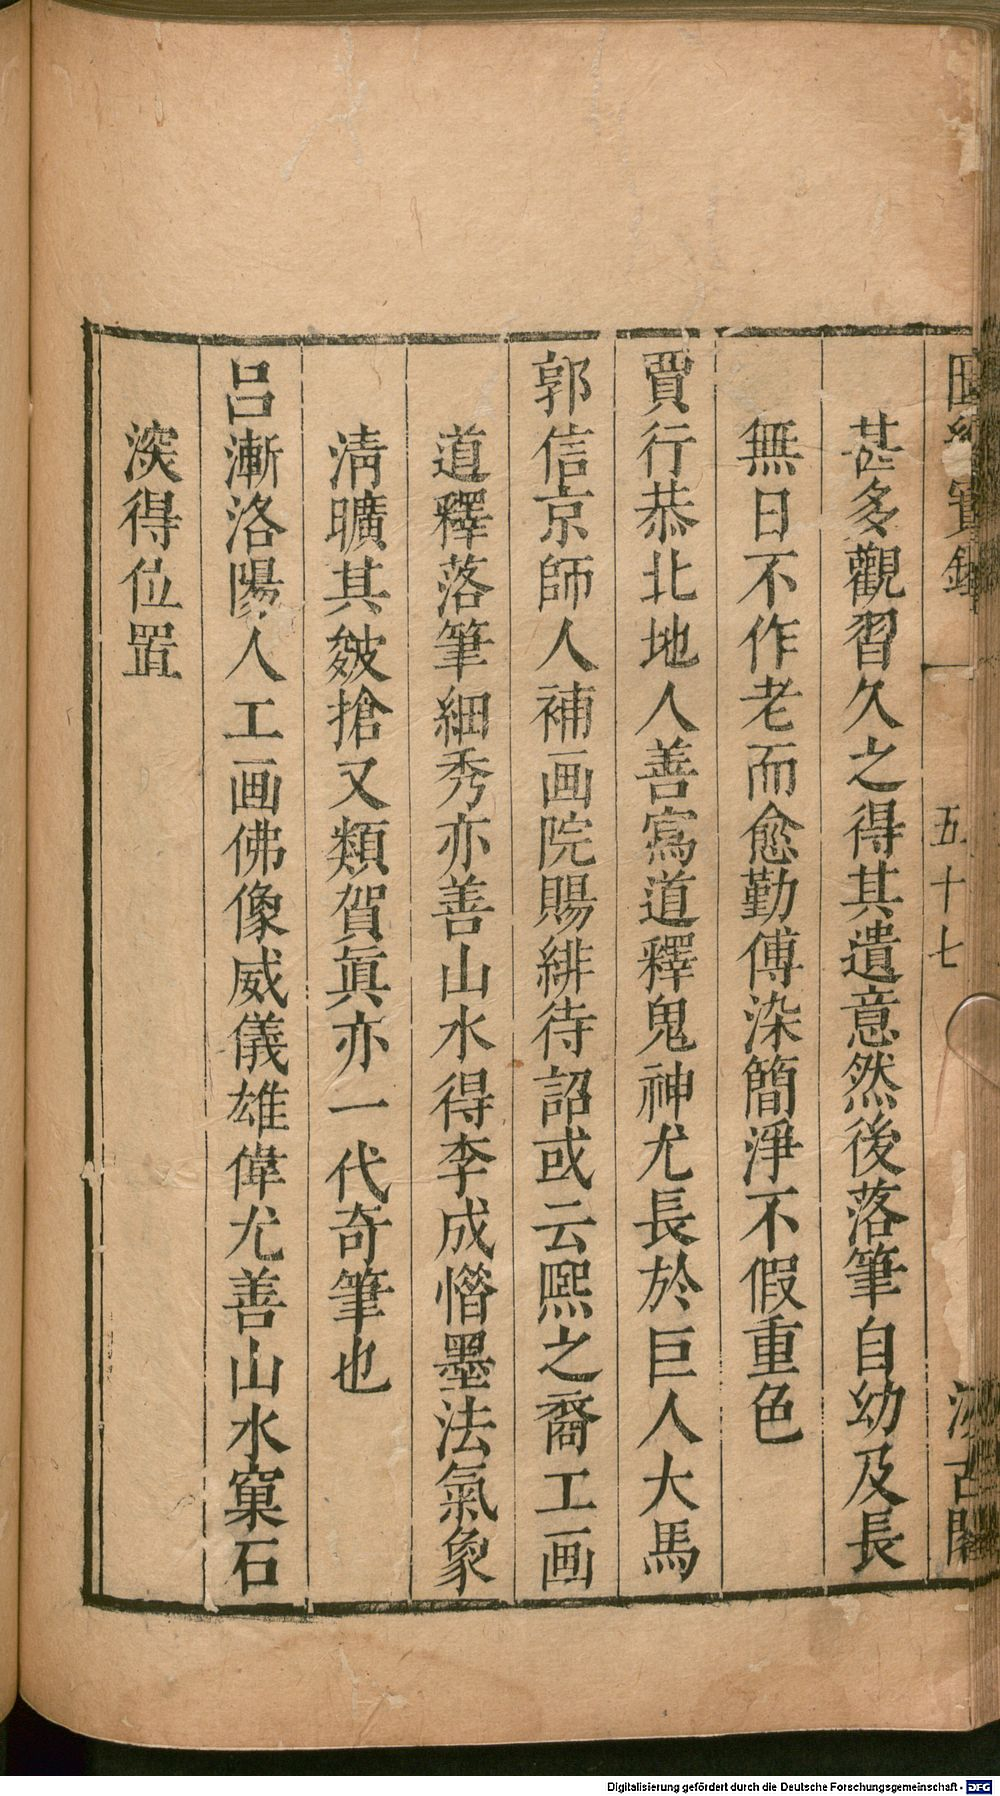 五十七
甚多觀習久之得其遺意然後落筆自幼及長
無日不作老而愈勤傅染簡淨不假重色
賈行恭北地人善寫道釋鬼神尤長於巨人大馬
郭信京師人補画院賜緋待詔或云熙之裔工画
道釋落筆細秀亦善山水得李成惜墨法氣象
清曠其皴搶又類賀眞亦一代奇筆也
呂漸洛陽人工画佛像威儀雄偉尤善山水窠石
深得位置
Digitalisierung gefördert durch die Deutsche Forschungsgemeinschaft - DFG